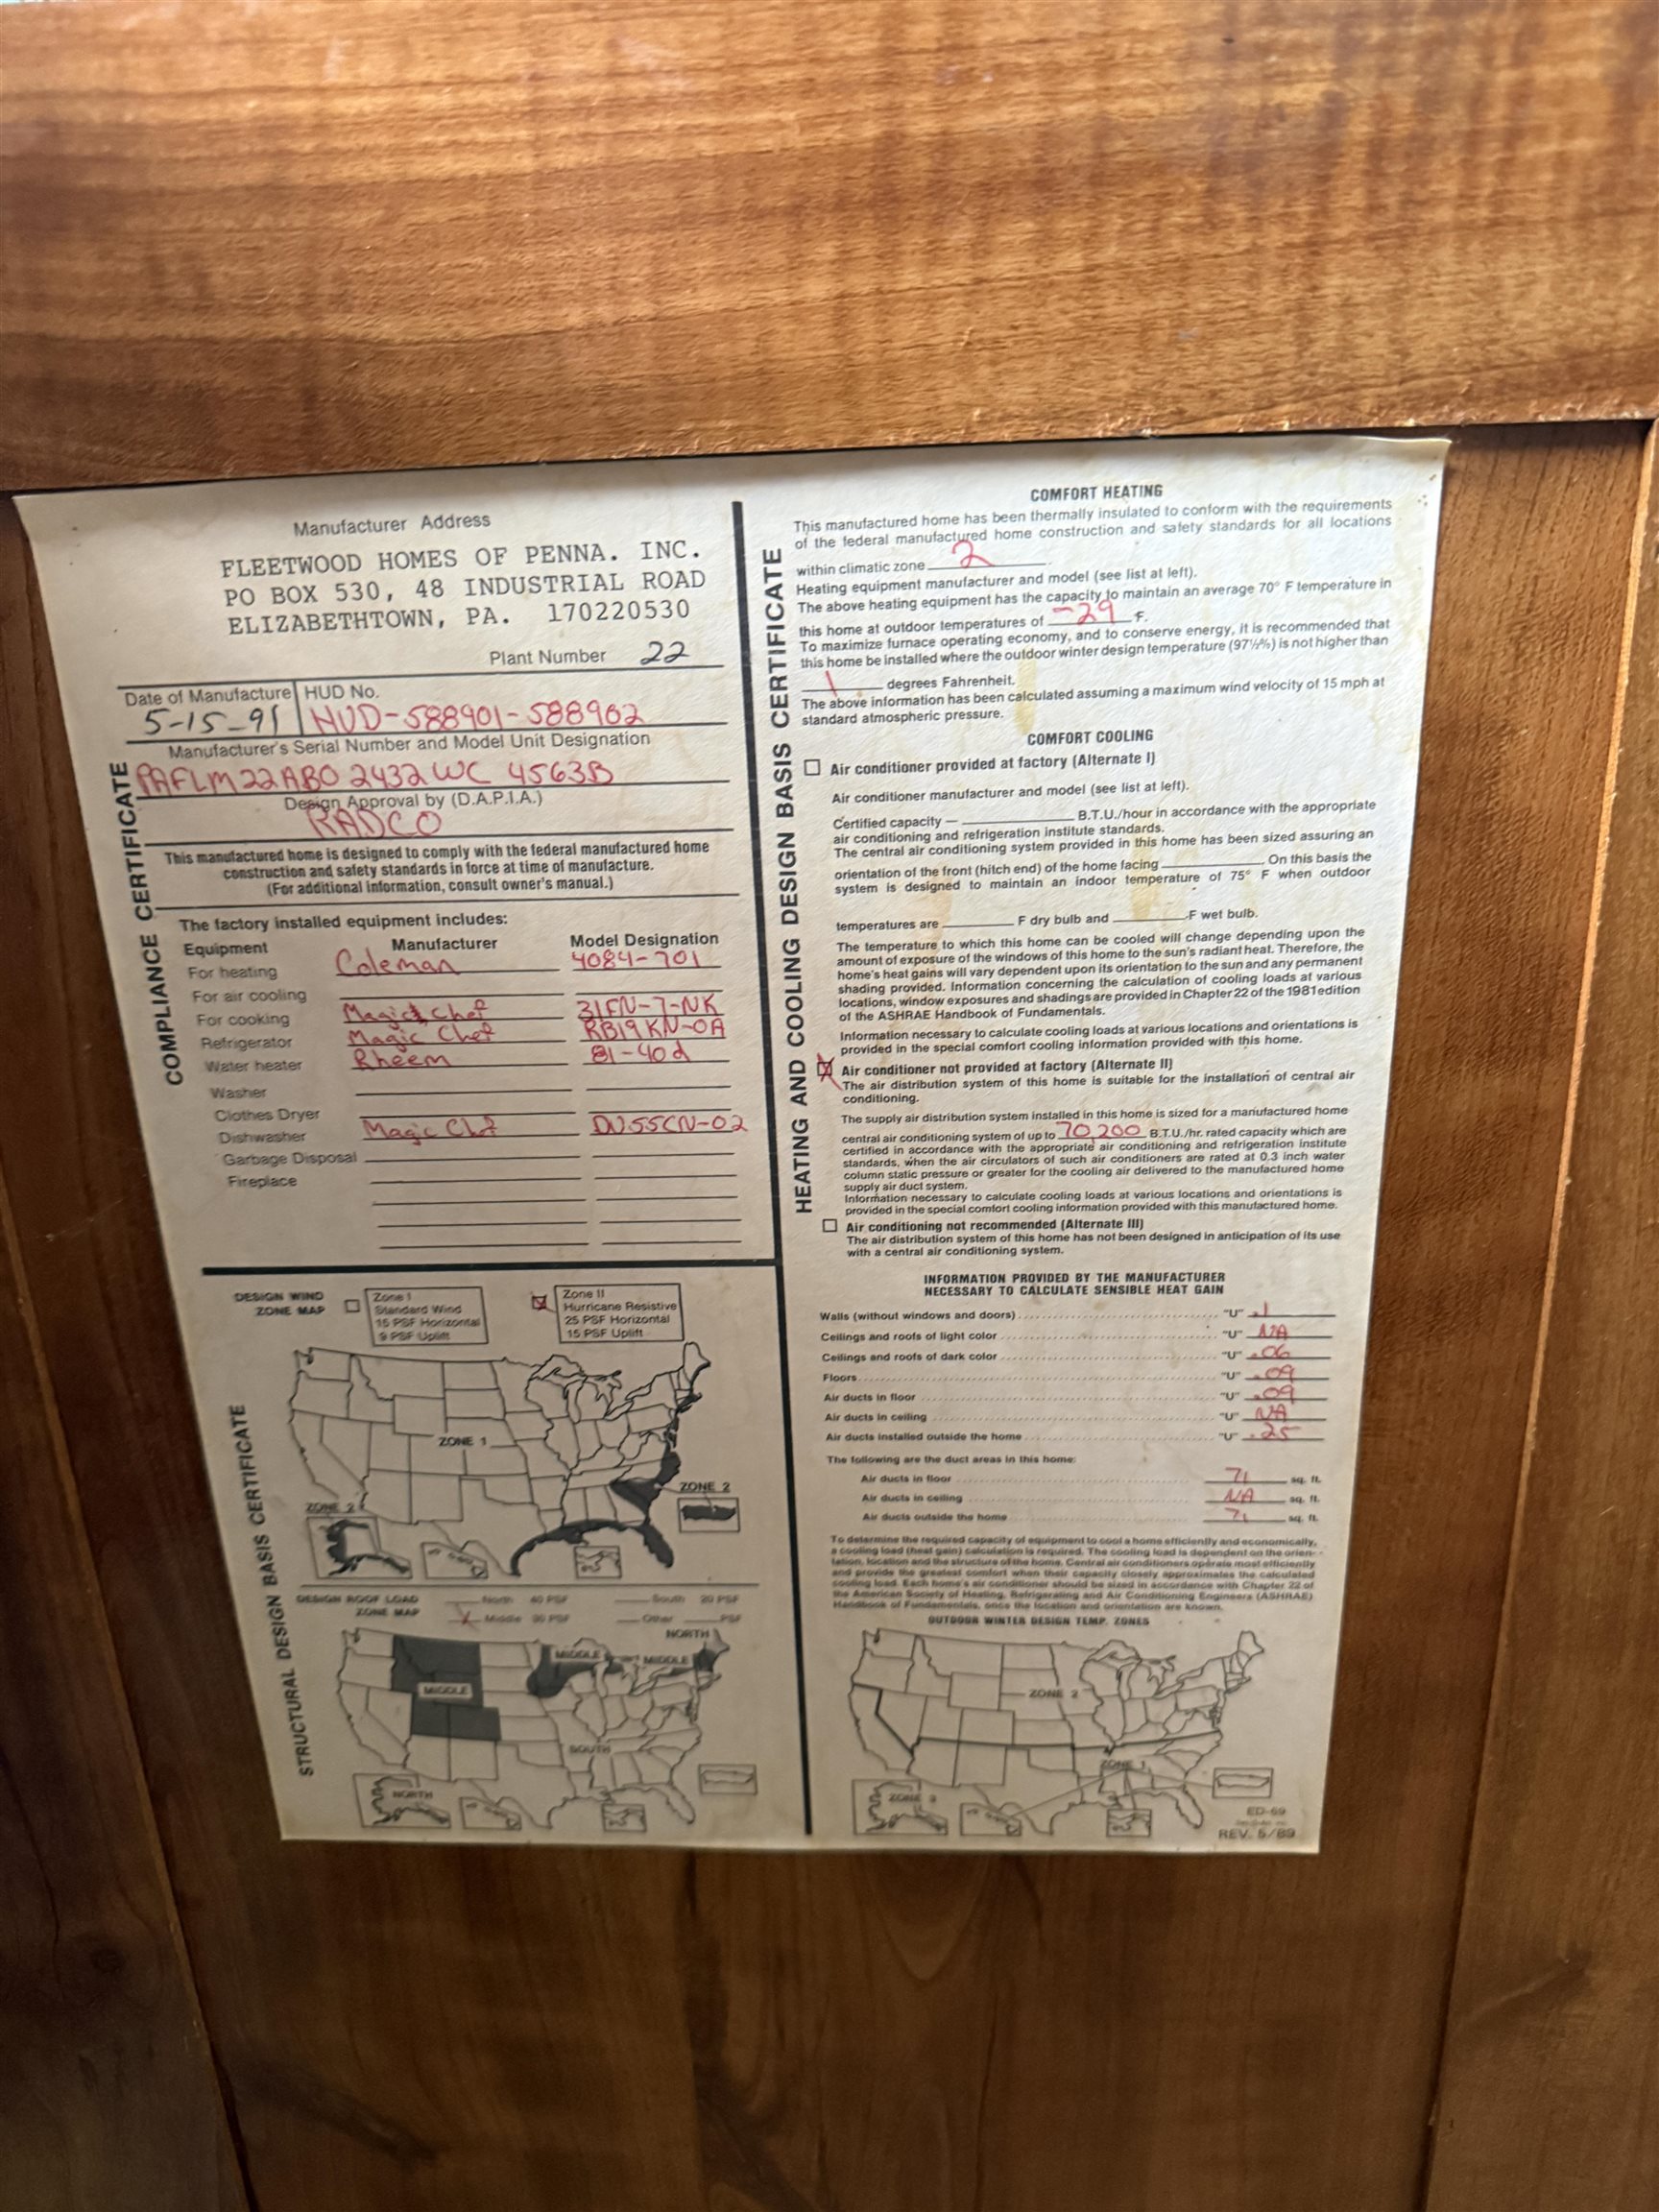 Manufacturer Address
FLEETWOOD HOMES OF PENNA. INC.
PO BOX 530, 48 INDUSTRIAL ROAD
ELIZABETHTOWN, PA. 170220530
Plant Number 22
COMPLIANCE CERTIFICATE
Date of Manufacture HUD No.
5-15-91 HUD-588901-588902
Manufacturer's Serial Number and Model Unit Designation
PAFLM22ABO 2432WC 4563B
Design Approval by (D.A.P.I.A.)
RADCO
This manufactured home is designed to comply with the federal manufactured home
construction and safety standards in force at time of manufacture.
(For additional information, consult owner's manual.)
The factory installed equipment includes:
Equipment Manufacturer Model Designation
For heating Coleman 4084-701
For air cooling
For cooking Magic Chef 31FN-7-NK
Refrigerator Magic Chef RB19KN-0A
Water heater Rheem 81-40d
Washer
Clothes Dryer
Dishwasher Magic Chef DU55CN-02
Garbage Disposal
Fireplace
STRUCTURAL DESIGN BASIS CERTIFICATE
DESIGN WIND
ZONE MAP
Zone I
Standard Wind
15 PSF Horizontal
9 PSF Uplift
Zone II
Hurricane Resistive
25 PSF Horizontal
15 PSF Uplift
ZONE 1
ZONE 2
ZONE 2
DESIGN ROOF LOAD
ZONE MAP
North 40 PSF
South 20 PSF
X Middle 30 PSF
Other PSF
NORTH
MIDDLE
MIDDLE
MIDDLE
SOUTH
NORTH
HEATING AND COOLING DESIGN BASIS CERTIFICATE
COMFORT HEATING
This manufactured home has been thermally insulated to conform with the requirements
of the federal manufactured home construction and safety standards for all locations
within climatic zone 2.
Heating equipment manufacturer and model (see list at left).
The above heating equipment has the capacity to maintain an average 70° F temperature in
this home at outdoor temperatures of -29 F.
To maximize furnace operating economy, and to conserve energy, it is recommended that
this home be installed where the outdoor winter design temperature (97½%) is not higher than
1 degrees Fahrenheit.
The above information has been calculated assuming a maximum wind velocity of 15 mph at
standard atmospheric pressure.
COMFORT COOLING
Air conditioner provided at factory (Alternate I)
Air conditioner manufacturer and model (see list at left).
Certified capacity — B.T.U./hour in accordance with the appropriate
air conditioning and refrigeration institute standards.
The central air conditioning system provided in this home has been sized assuring an
orientation of the front (hitch end) of the home facing On this basis the
system is designed to maintain an indoor temperature of 75° F when outdoor
temperatures are F dry bulb and F wet bulb.
The temperature to which this home can be cooled will change depending upon the
amount of exposure of the windows of this home to the sun's radiant heat. Therefore, the
home's heat gains will vary dependent upon its orientation to the sun and any permanent
shading provided. Information concerning the calculation of cooling loads at various
locations, window exposures and shadings are provided in Chapter 22 of the 1981 edition
of the ASHRAE Handbook of Fundamentals.
Information necessary to calculate cooling loads at various locations and orientations is
provided in the special comfort cooling information provided with this home.
X Air conditioner not provided at factory (Alternate II)
The air distribution system of this home is suitable for the installation of central air
conditioning.
The supply air distribution system installed in this home is sized for a manufactured home
central air conditioning system of up to 70,200 B.T.U./hr. rated capacity which are
certified in accordance with the appropriate air conditioning and refrigeration institute
standards, when the air circulators of such air conditioners are rated at 0.3 inch water
column static pressure or greater for the cooling air delivered to the manufactured home
supply air duct system.
Information necessary to calculate cooling loads at various locations and orientations is
provided in the special comfort cooling information provided with this manufactured home.
Air conditioning not recommended (Alternate III)
The air distribution system of this home has not been designed in anticipation of its use
with a central air conditioning system.
INFORMATION PROVIDED BY THE MANUFACTURER
NECESSARY TO CALCULATE SENSIBLE HEAT GAIN
Walls (without windows and doors) "U" .1
Ceilings and roofs of light color "U" NA
Ceilings and roofs of dark color "U" .06
Floors "U" .09
Air ducts in floor "U" .09
Air ducts in ceiling "U" NA
Air ducts installed outside the home "U" .25
The following are the duct areas in this home:
Air ducts in floor 71 sq. ft.
Air ducts in ceiling NA sq. ft.
Air ducts outside the home 71 sq. ft.
To determine the required capacity of equipment to cool a home efficiently and economically,
a cooling load (heat gain) calculation is required. The cooling load is dependent on the orien-
tation, location and the structure of the home. Central air conditioners operate most efficiently
and provide the greatest comfort when their capacity closely approximates the calculated
cooling load. Each home's air conditioner should be sized in accordance with Chapter 22 of
the American Society of Heating, Refrigerating and Air Conditioning Engineers (ASHRAE)
Handbook of Fundamentals, once the location and orientation are known.
OUTDOOR WINTER DESIGN TEMP. ZONES
ZONE 2
ZONE 1
ZONE 3
ED-69
REV. 5/89